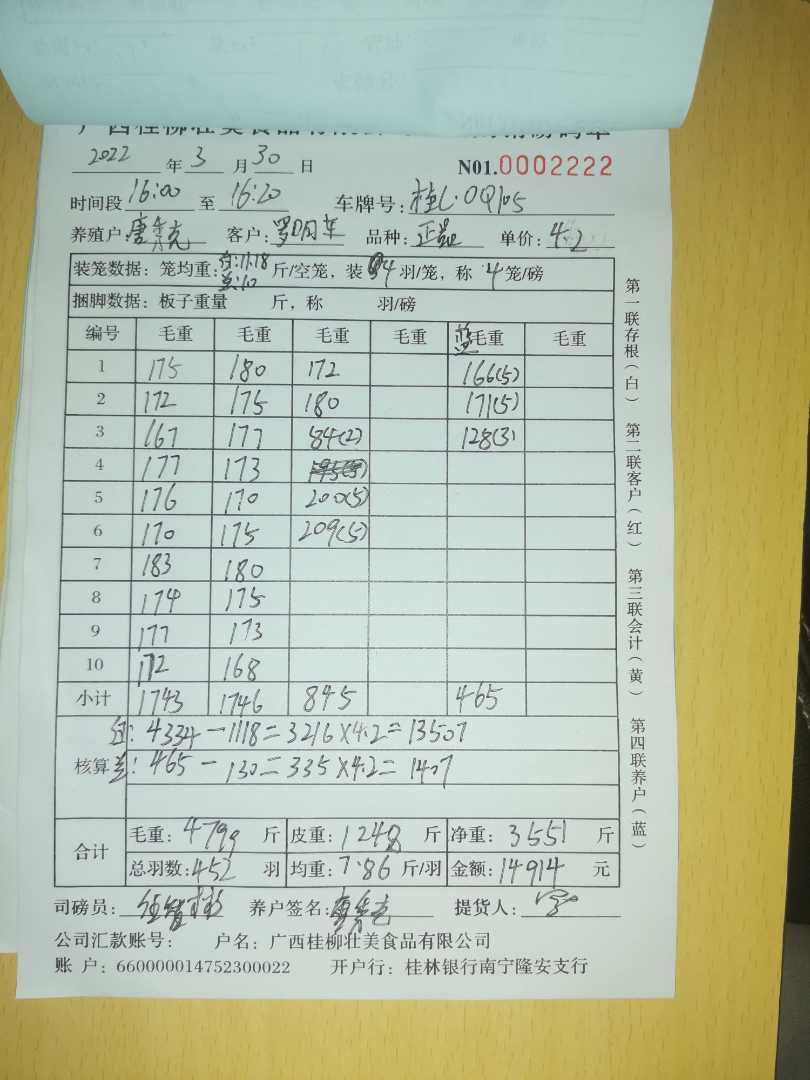 2022 年 3 月 30 日 N01.0002222
时间段 16:00 至 16:20 车牌号:桂L·0Q105
养殖户: 客户: 品种: 单价:4.2
装笼数据: 笼均重: 斤/空笼, 装 4 羽/笼, 称 4 笼/磅
捆脚数据: 板子重量 斤, 称 羽/磅
编号 毛重 毛重 毛重 毛重 蓝毛重 毛重
1 175 180 172 166(5)
2 172 175 180 171(5)
3 167 177 84(2) 128(3)
4 177 173
5 176 170 200(5)
6 170 175 209(5)
7 183 180
8 174 175
9 177 173
10 172 168
小计 1743 1746 845 465
核算
白: 4334-1118=3216×4.2=13507
兰: 465-130=335×4.2=1407
合计
毛重: 4799 斤 皮重: 1248 斤 净重: 3551 斤
总羽数:452 羽 均重: 7.86 斤/羽 金额: 14914 元
司磅员: 养户签名: 提货人:
公司汇款账号: 户名: 广西桂柳壮美食品有限公司
账 户: 660000014752300022 开户行: 桂林银行南宁隆安支行
第一联存根(白) 第二联客户(红) 第三联会计(黄) 第四联养户(蓝)